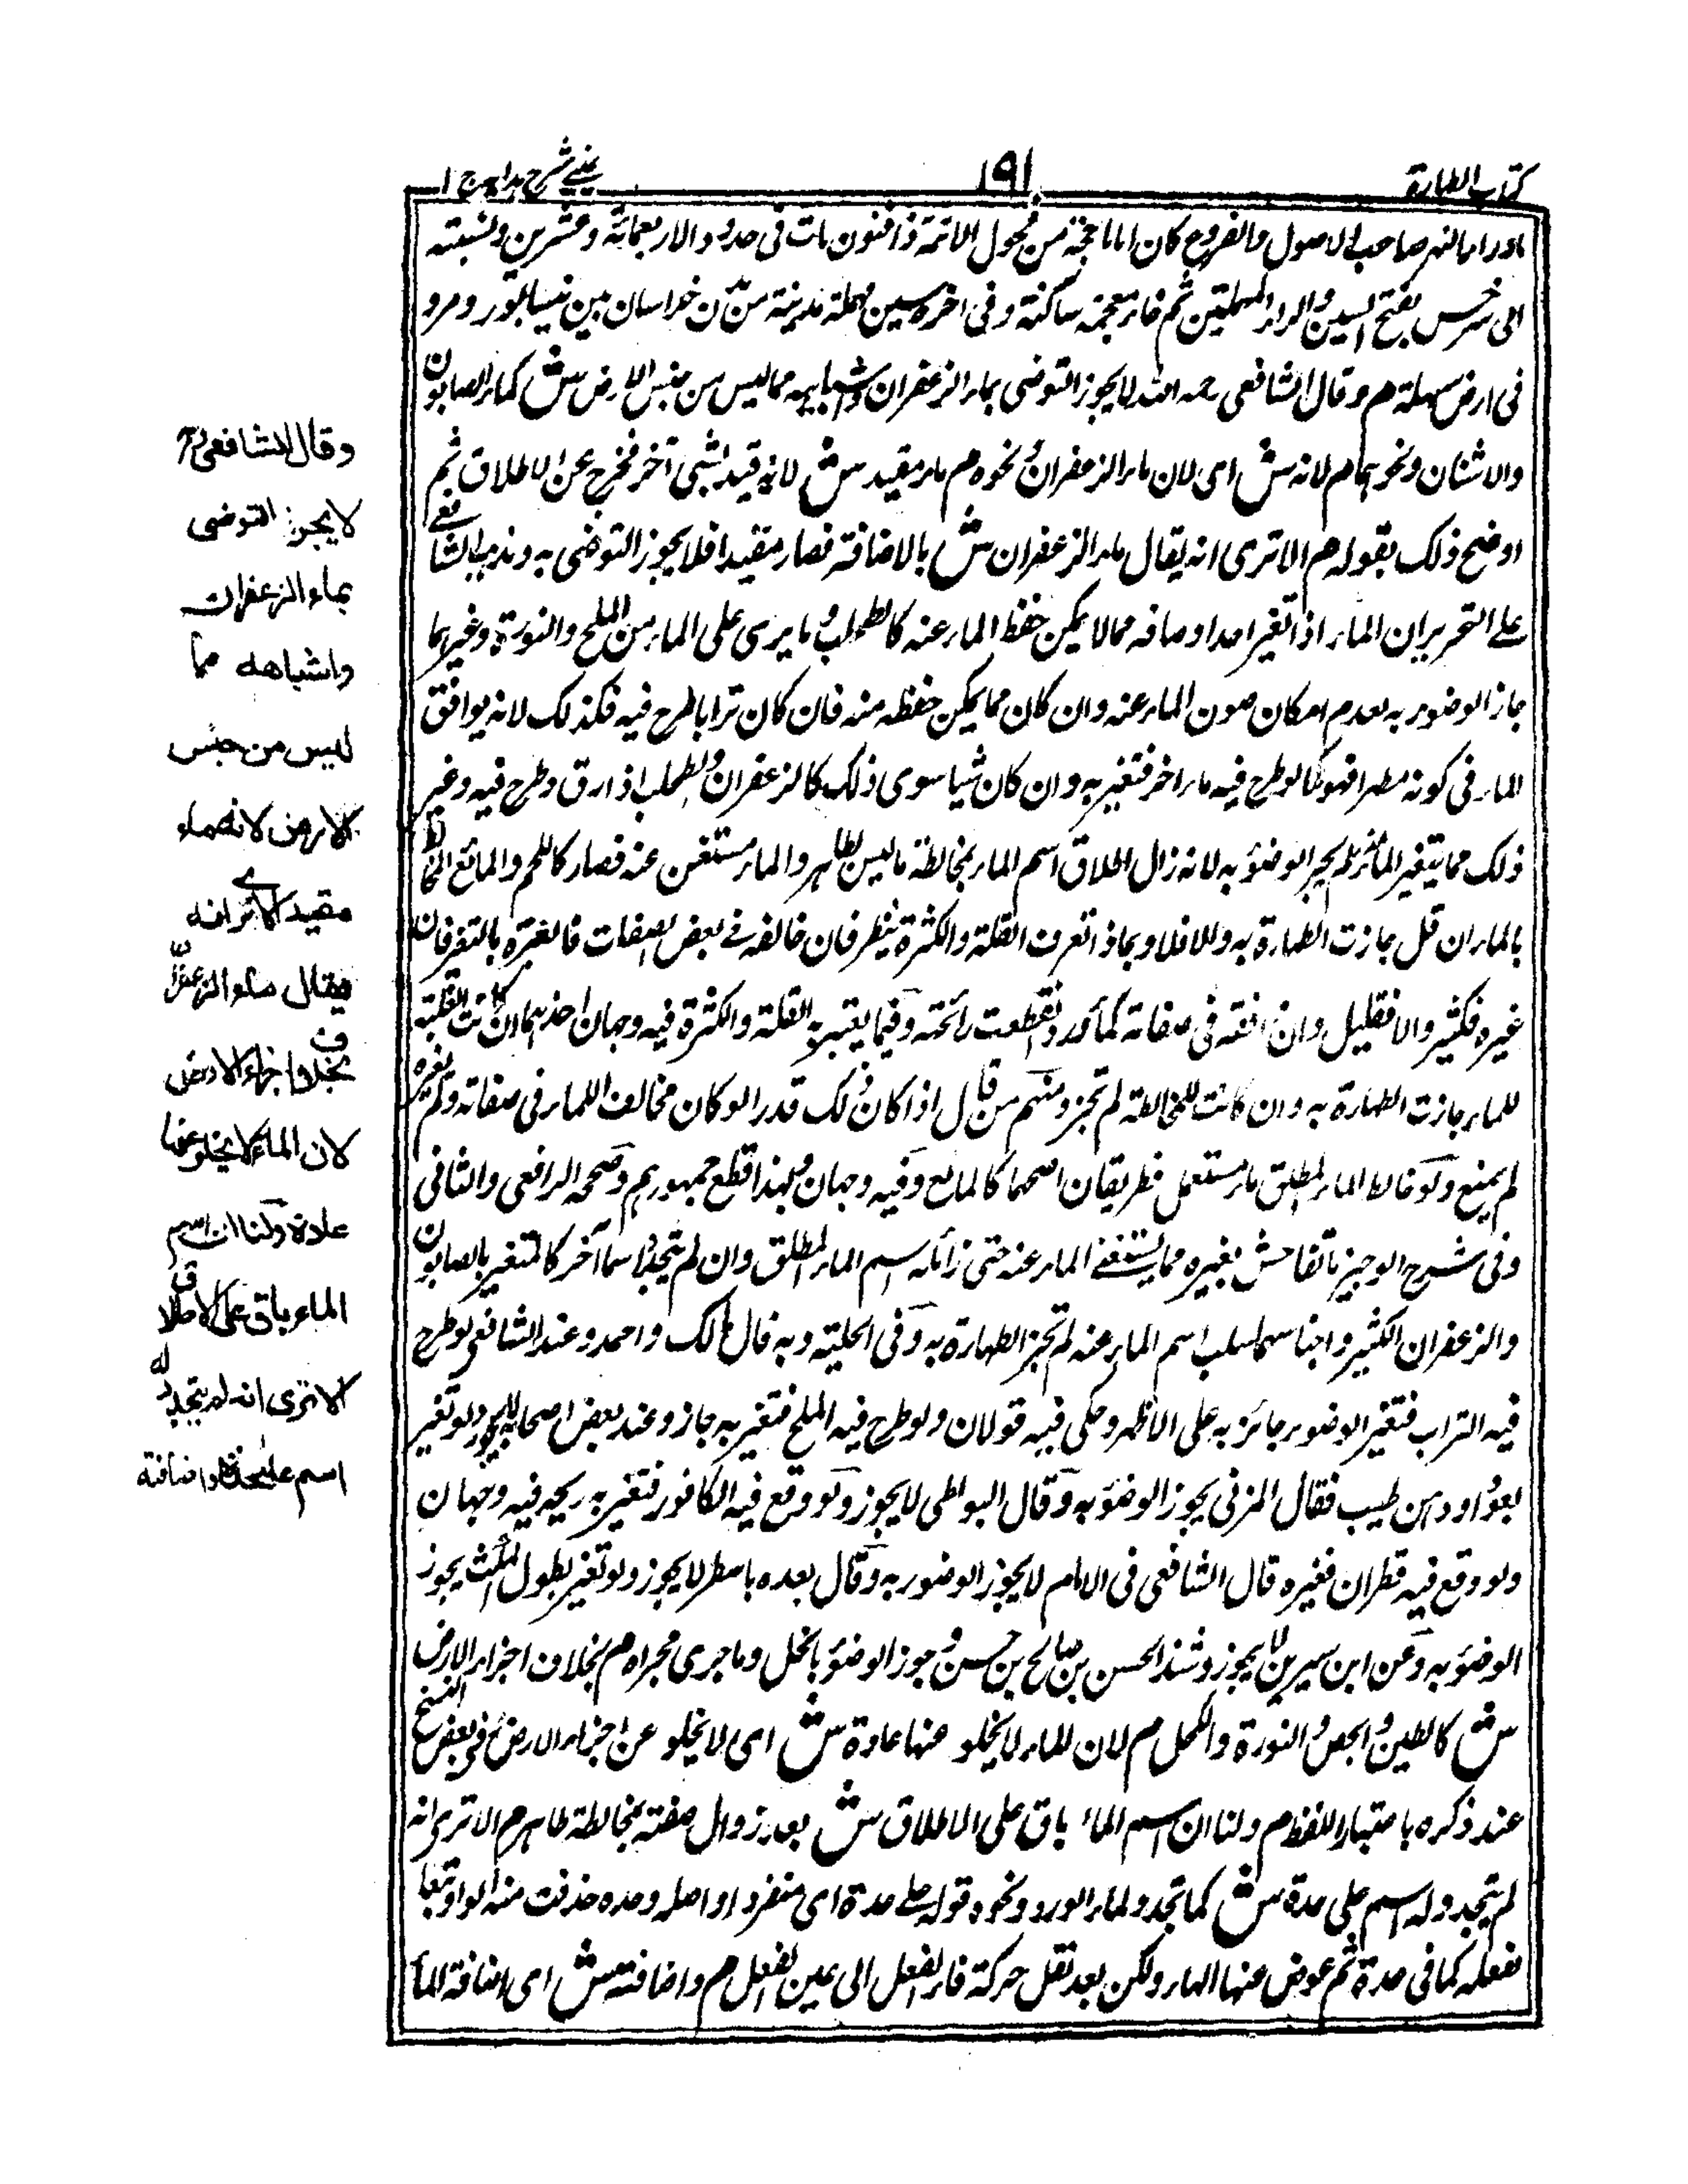 كتاب الطهارة
١٩١
عيني شرح هدايه ج ١
ماوراء النهر صاحب الاصول والفروع كان اماما حجة من فحول الائمة ذا فنون مات فى حدود الاربعمائة وعشرين ونسبته
الى سرخس بفتح السين والراء المهملتين ثم خاء معجمة ساكنة وفى اخره سين مهملة مدينة من مدن خراسان بين نيسابور ومرو
فى ارض سهلة م وقال الشافعى رحمه الله لا يجوز التوضى بماء الزعفران واشباهه مما ليس من جنس الارض ش كماء الصابون
والاشنان ونحوهما م لانه ش اى لان ماء الزعفران ونحوه م ماء مقيد ش لانه قيد بشئ آخر فخرج عن الاطلاق ثم
اوضح ذلك بقوله م الا ترى انه يقال ماء الزعفران ش بالاضافة فصار مقيدا فلا يجوز التوضى به ومذهب الشافعى
على التحرير ان الماء اذا تغير احد اوصافه مما لا يمكن حفظ الماء عنه كالطحلب وما يرى على الماء من الملح والنورة وغيرهما
جاز الوضوء به لعدم امكان صون الماء عنه وان كان مما يمكن حفظه منه فان كان ترابا طرح فيه فكذلك لانه يوافق
الماء فى كونه مطهرا فهو كما لو طرح فيه ماء اخر فتغير به وان كان شيا سوى ذلك كالزعفران والطحلب اذا دق وطرح فيه وغير
ذلك مما يتغير الماء به لم يجز الوضوء به لانه زال اطلاق اسم الماء بمخالطة ما ليس بطاهر والماء مستغن عنه فصار كاللحم والمائع المخالط
بالماء ان قل جازت الطهارة به والا فلا وبماذا تعرف القلة والكثرة ينظر فان خالفه فى بعض الصفات فالعبرة بالتغير فان
غيره فكثير والا فقليل وان وافقه فى صفاته كماء ورد انقطعت رائحته وفيما يعتبر به القلة والكثرة فيه وجهان احدهما ان كانت الغلبة
للماء جازت الطهارة به وان كانت للمخالطة لم تجز ومنهم من قال اذا كان ذلك قدرا لو كان مخالفا للماء فى صفاته ولم يغيره
لم يمنع ولو خالط الماء المطلق ماء مستعمل فطريقان اصحهما كالمائع وفيه وجهان وبهذا قطع جمهورهم وصححه الرافعى والثانى
وفى شرح الوجيز ما تفاحش تغيره مما يستغنى الماء عنه حتى زايله اسم الماء المطلق وان لم يتجدد له اسما آخر كالمتغير بالصابون
والزعفران الكثير واجناسهما سلب اسم الماء عنه لم تجز الطهارة به وفى الحلية وبه قال مالك واحمد وعند الشافعى لو طرح
فيه التراب فتغير الوضوء جائز به على الاظهر وحكى فيه قولان ولو طرح فيه الملح فتغير به جاز وعند بعض اصحابه لا يجوز ولو تغير
بعود او دهن طيب فقال المزنى يجوز الوضوء به وقال البواطى لا يجوز ولو وقع فيه الكافور فتغير به ريحه فيه وجهان
ولو وقع فيه قطران فغيره قال الشافعى فى الامام لا يجوز الوضوء به وقال بعده باسطر لا يجوز ولو تغير بطول المكث يجوز
الوضوء به وعن ابن سيرين لا يجوز وشذ الحسن بن صالح بن حسن وجوز الوضوء بالخل وما جرى مجراه م بخلاف اجزاء الارض
ش كالطين والجص والنورة والكحل م لان الماء لا يخلو عنها عادة ش اى لا يخلو عن اجزاء الارض وفى بعض النسخ
عند ذكره باعتبار اللفظ م ولنا ان اسم الماء باق على الاطلاق ش بعد زوال صفته بمخالطة طاهر م الا ترى انه
لم يتجدد له اسم على حدة ش كما تجدد لماء الورد ونحوه قوله على حدة اى منفردا واصله وحده حذفت منه الواو تبعا
لفعله كما فى عدة ثم عوض عنها الهاء ولكن بعد نقل حركة فاء الفعل الى عين الفعل م واضافته ش اى اضافة الماء
وقال الشافعى رح
لا يجوز التوضى
بماء الزعفران
واشباهه مما
ليس من جنس
الارض لانه ماء
مقيد الا ترى انه
يقال ماء الزعفران
بخلاف اجزاء الارض
لان الماء لا يخلو عنها
عادة ولنا ان اسم
الماء باق على الاطلاق
الا ترى انه لم يتجدد له
اسم على حدة واضافته